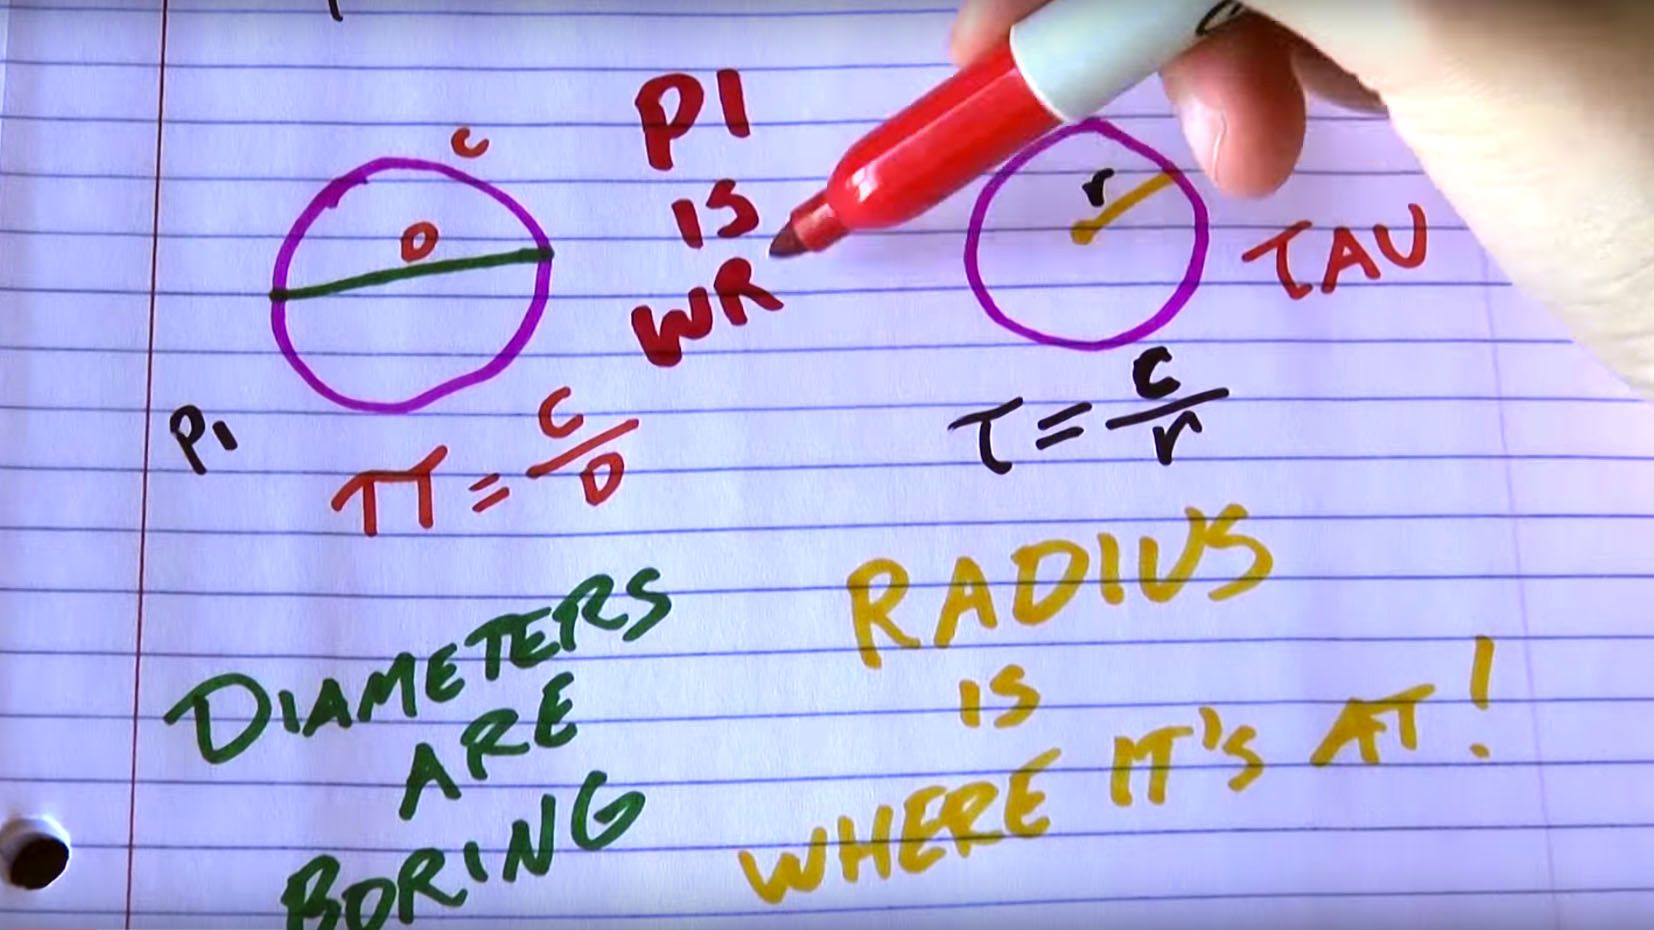 C
D
PI
π = C/D
PI
IS
WR
r
TAU
τ = C/r
DIAMETERS
ARE
BORING
RADIUS
IS
WHERE IT'S AT!